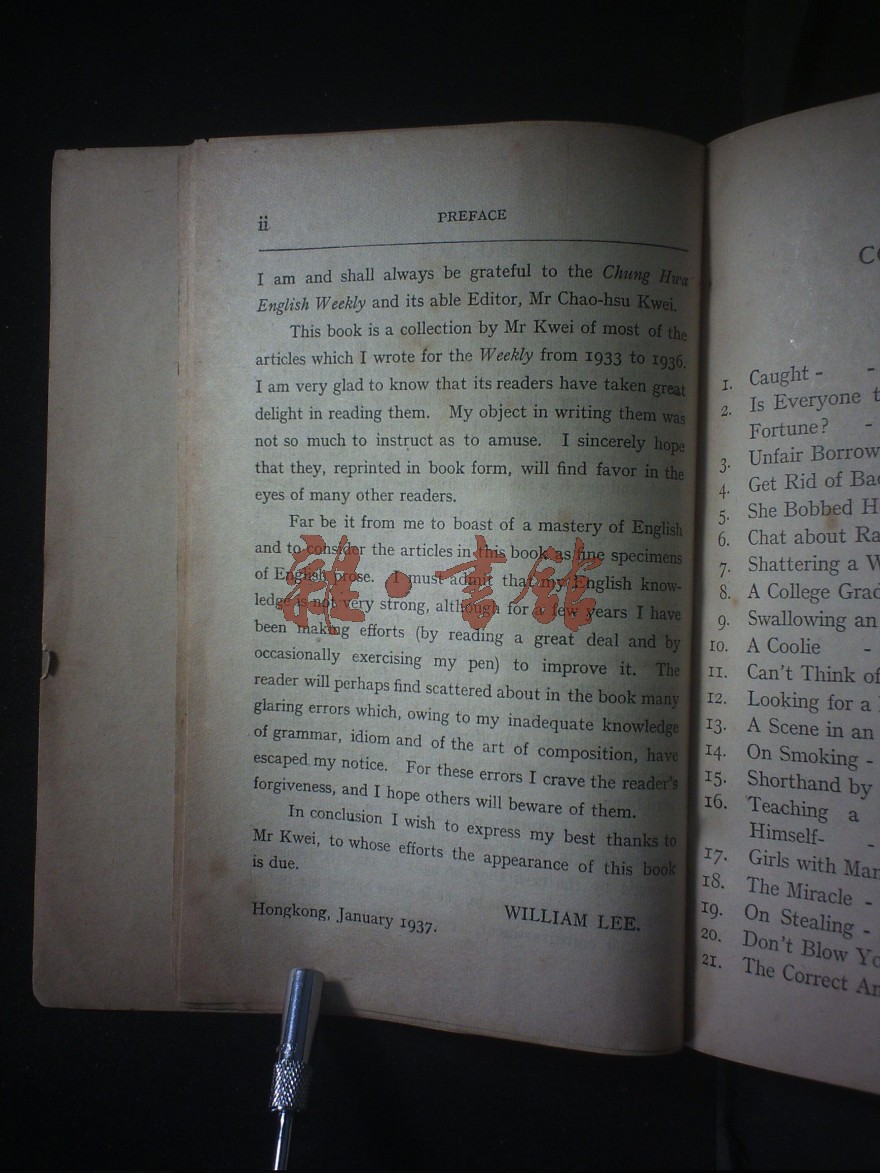 ii
PREFACE
I am and shall always be grateful to the Chung Hwa
English Weekly and its able Editor, Mr Chao-hsu Kwei.
This book is a collection by Mr Kwei of most of the
articles which I wrote for the Weekly from 1933 to 1936.
I am very glad to know that its readers have taken great
delight in reading them. My object in writing them was
not so much to instruct as to amuse. I sincerely hope
that they, reprinted in book form, will find favor in the
eyes of many other readers.
Far be it from me to boast of a mastery of English
and to consider the articles in this book as fine specimens
of English prose. I must admit that my English know-
ledge is not very strong, although for a few years I have
been making efforts (by reading a great deal and by
occasionally exercising my pen) to improve it. The
reader will perhaps find scattered about in the book many
glaring errors which, owing to my inadequate knowledge
of grammar, idiom and of the art of composition, have
escaped my notice. For these errors I crave the reader's
forgiveness, and I hope others will beware of them.
In conclusion I wish to express my best thanks to
Mr Kwei, to whose efforts the appearance of this book
is due.
Hongkong, January 1937. WILLIAM LEE.
雜·書館
CO
1. Caught -   -
2. Is Everyone t
Fortune?   -
3. Unfair Borrow
4. Get Rid of Ba
5. She Bobbed H
6. Chat about Ra
7. Shattering a W
8. A College Grad
9. Swallowing an
10. A Coolie   -
11. Can't Think of
12. Looking for a
13. A Scene in an
14. On Smoking -
15. Shorthand by
16. Teaching a
Himself-   -
17. Girls with Man
18. The Miracle -
19. On Stealing -
20. Don't Blow Yo
21. The Correct An